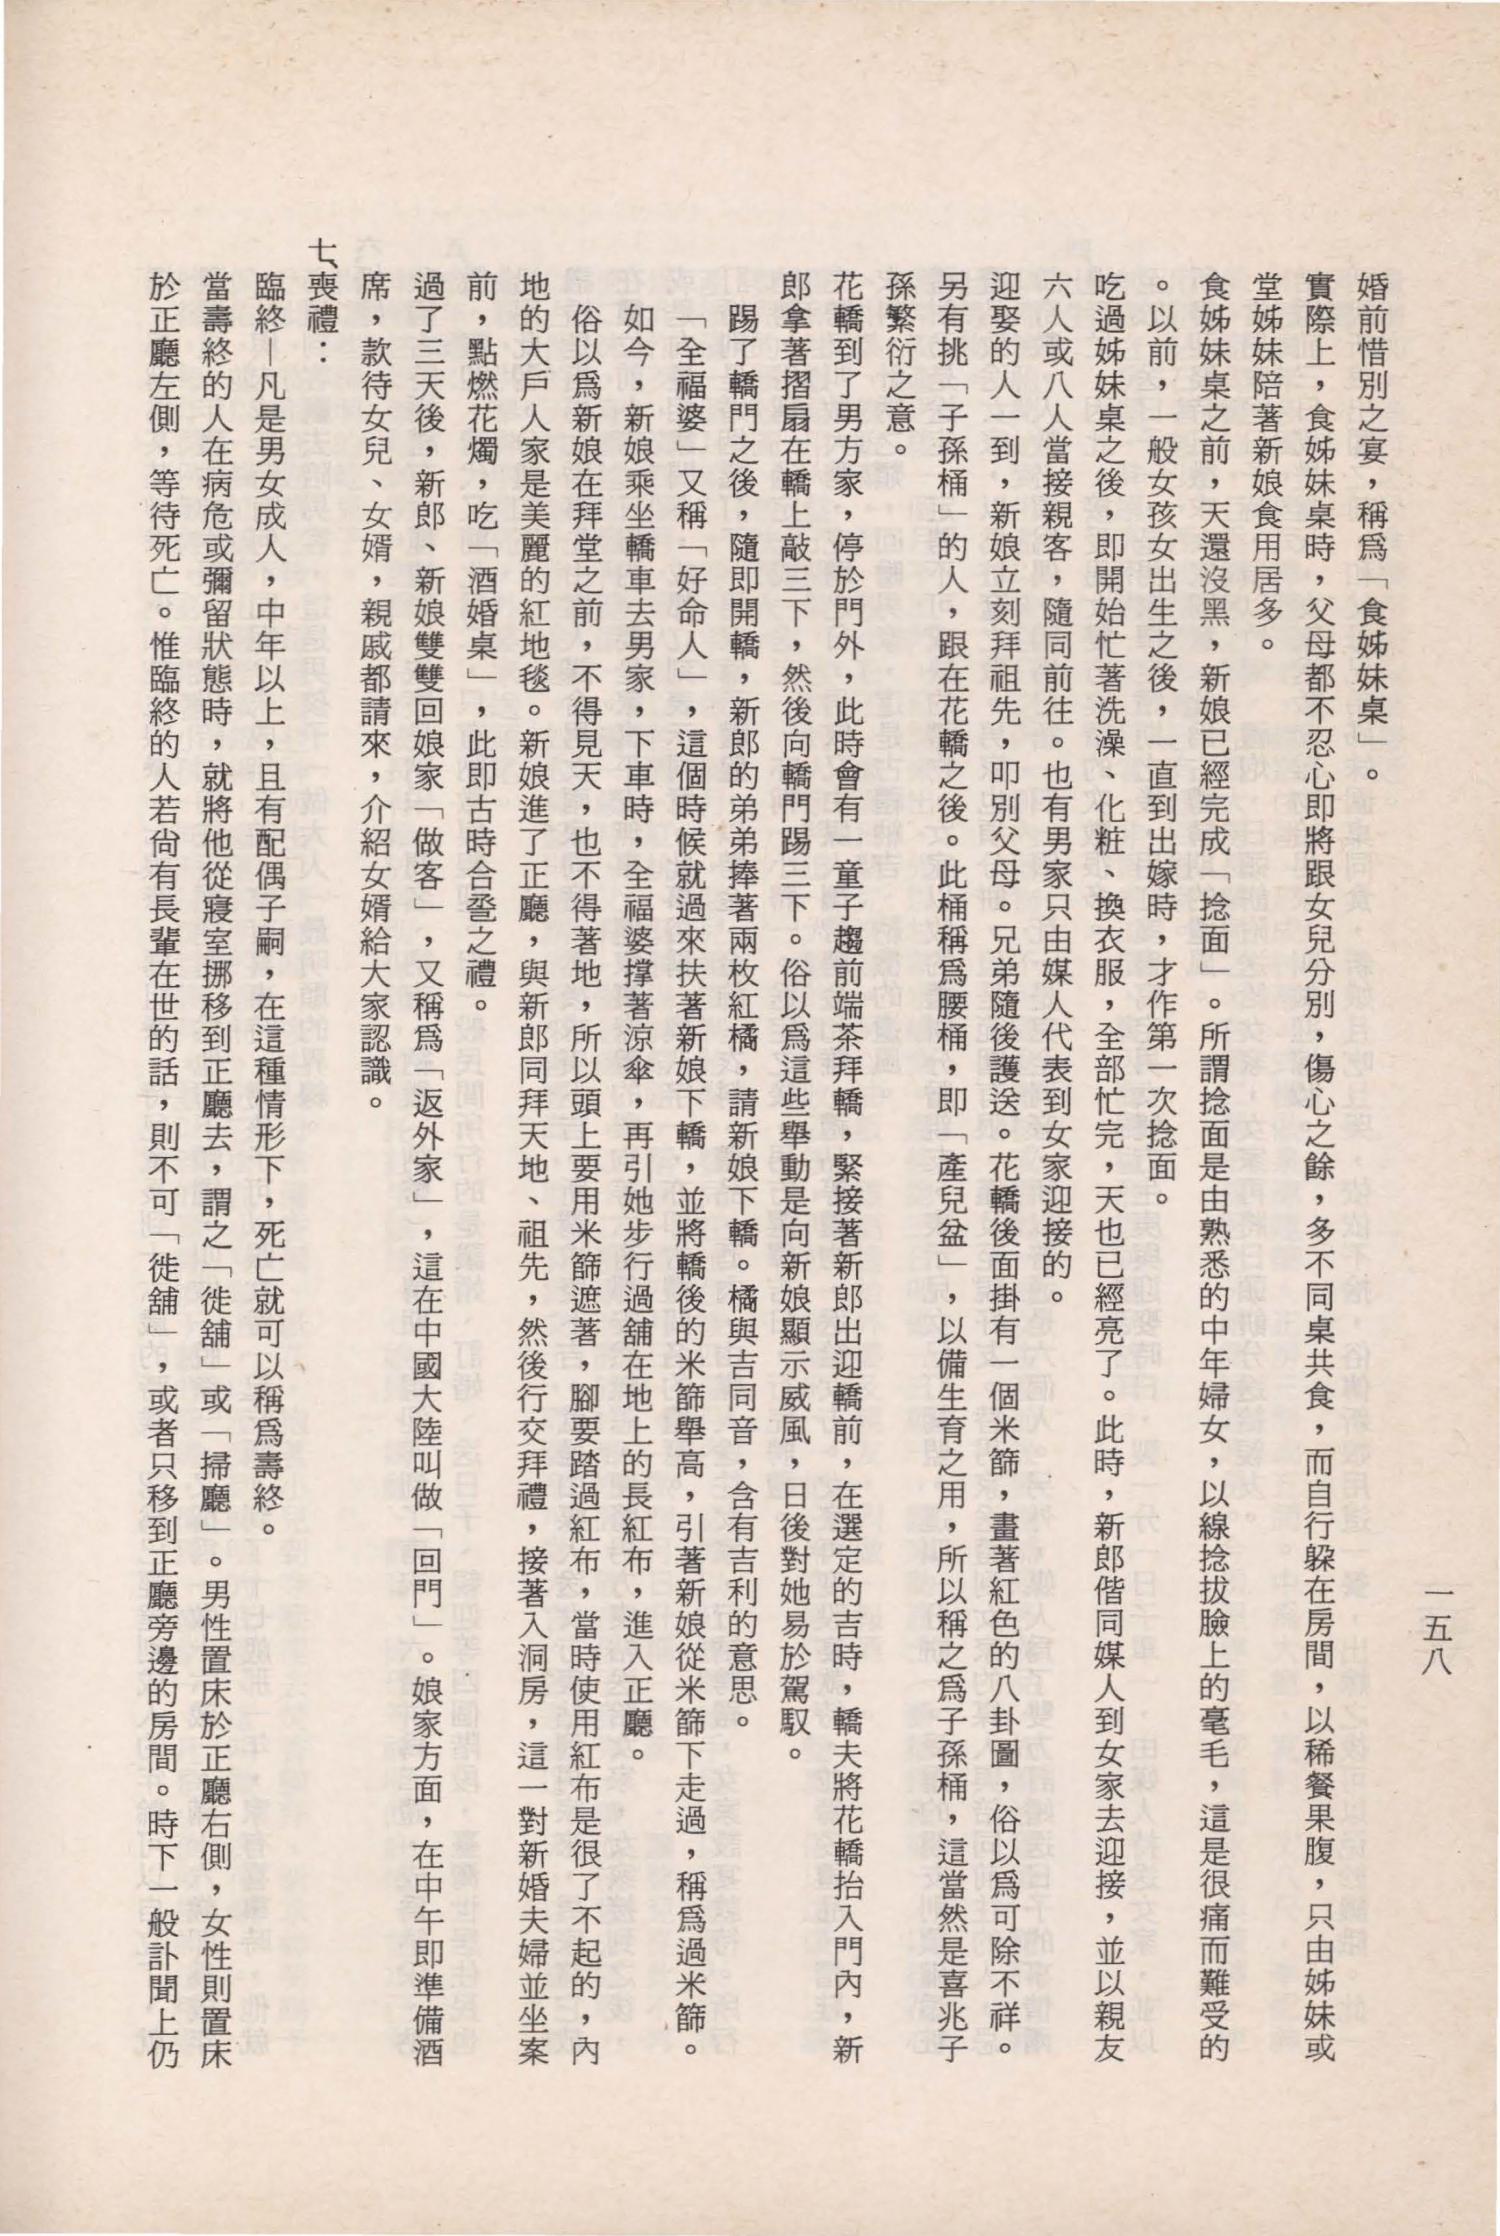 一五八
婚前惜別之宴，稱爲「食姊妹桌」。
實際上，食姊妹桌時，父母都不忍心即將跟女兒分別，傷心之餘，多不同桌共食，而自行躱在房間，以稀餐果腹，只由姊妹或
堂姊妹陪著新娘食用居多。
食姊妹桌之前，天還沒黑，新娘已經完成「捻面」。所謂捻面是由熟悉的中年婦女，以線捻拔臉上的毫毛，這是很痛而難受的
。以前，一般女孩女出生之後，一直到出嫁時，才作第一次捻面。
吃過姊妹桌之後，即開始忙著洗澡、化粧、換衣服，全部忙完，天也已經亮了。此時，新郎偕同媒人到女家去迎接，並以親友
六人或八人當接親客，隨同前往。也有男家只由媒人代表到女家迎接的。
迎娶的人一到，新娘立刻拜祖先，叩別父母。兄弟隨後護送。花轎後面掛有一個米篩，畫著紅色的八卦圖，俗以爲可除不祥。
另有挑「子孫桶」的人，跟在花轎之後。此桶稱爲腰桶，即「產兒盆」，以備生育之用，所以稱之爲子孫桶，這當然是喜兆子
孫繁衍之意。
花轎到了男方家，停於門外，此時會有一童子趨前端茶拜轎，緊接著新郎出迎轎前，在選定的吉時，轎夫將花轎抬入門內，新
郎拿著摺扇在轎上敲三下，然後向轎門踢三下。俗以爲這些舉動是向新娘顯示威風，日後對她易於駕馭。
踢了轎門之後，隨即開轎，新郎的弟弟捧著兩枚紅橘，請新娘下轎。橘與吉同音，含有吉利的意思。
「全福婆」又稱「好命人」，這個時候就過來扶著新娘下轎，並將轎後的米篩舉高，引著新娘從米篩下走過，稱爲過米篩。
如今，新娘乘坐轎車去男家，下車時，全福婆撑著涼傘，再引她步行過舖在地上的長紅布，進入正廳。
俗以爲新娘在拜堂之前，不得見天，也不得著地，所以頭上要用米篩遮著，腳要踏過紅布，當時使用紅布是很了不起的，內
地的大戶人家是美麗的紅地毯。新娘進了正廳，與新郎同拜天地、祖先，然後行交拜禮，接著入洞房，這一對新婚夫婦並坐案
前，點燃花燭，吃「酒婚桌」，此即古時合巹之禮。
過了三天後，新郎、新娘雙雙回娘家「做客」，又稱爲「返外家」，這在中國大陸叫做「回門」。娘家方面，在中午即準備酒
席，款待女兒、女婿，親戚都請來，介紹女婿給大家認識。
七、喪禮：
臨終—凡是男女成人，中年以上，且有配偶子嗣，在這種情形下，死亡就可以稱爲壽終。
當壽終的人在病危或彌留狀態時，就將他從寢室挪移到正廳去，謂之「徙舖」或「掃廳」。男性置床於正廳右側，女性則置床
於正廳左側，等待死亡。惟臨終的人若尙有長輩在世的話，則不可「徙舖」，或者只移到正廳旁邊的房間。時下一般訃聞上仍